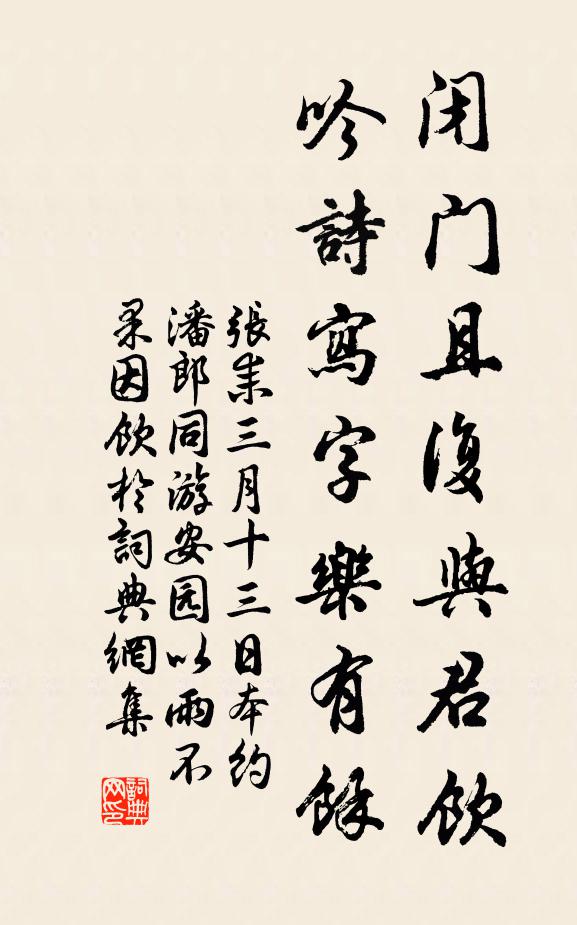 闭门且復與君飲
吟詩寫字樂有餘
張耒三月十三日本约
潘郎同游安园以雨不
果因飲於詞典網集
詞典网印